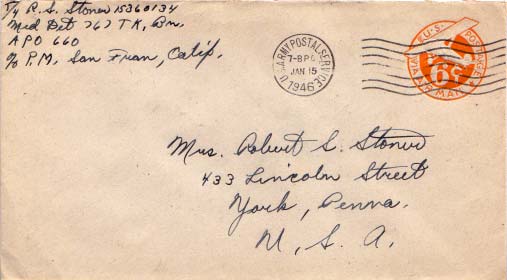 T/4 R. S. Stoner 15360134
Med Det 767 TK. Bn.
APO 660
c/o P.M. San Fran, Calif.
U.S. ARMY POSTAL SERVICE
7-8 PM
JAN 15
1946
U.S. POSTAGE
6¢
VIA AIR MAIL
Mrs. Robert S. Stoner
433 Lincoln Street
York, Penna.
U. S. A.